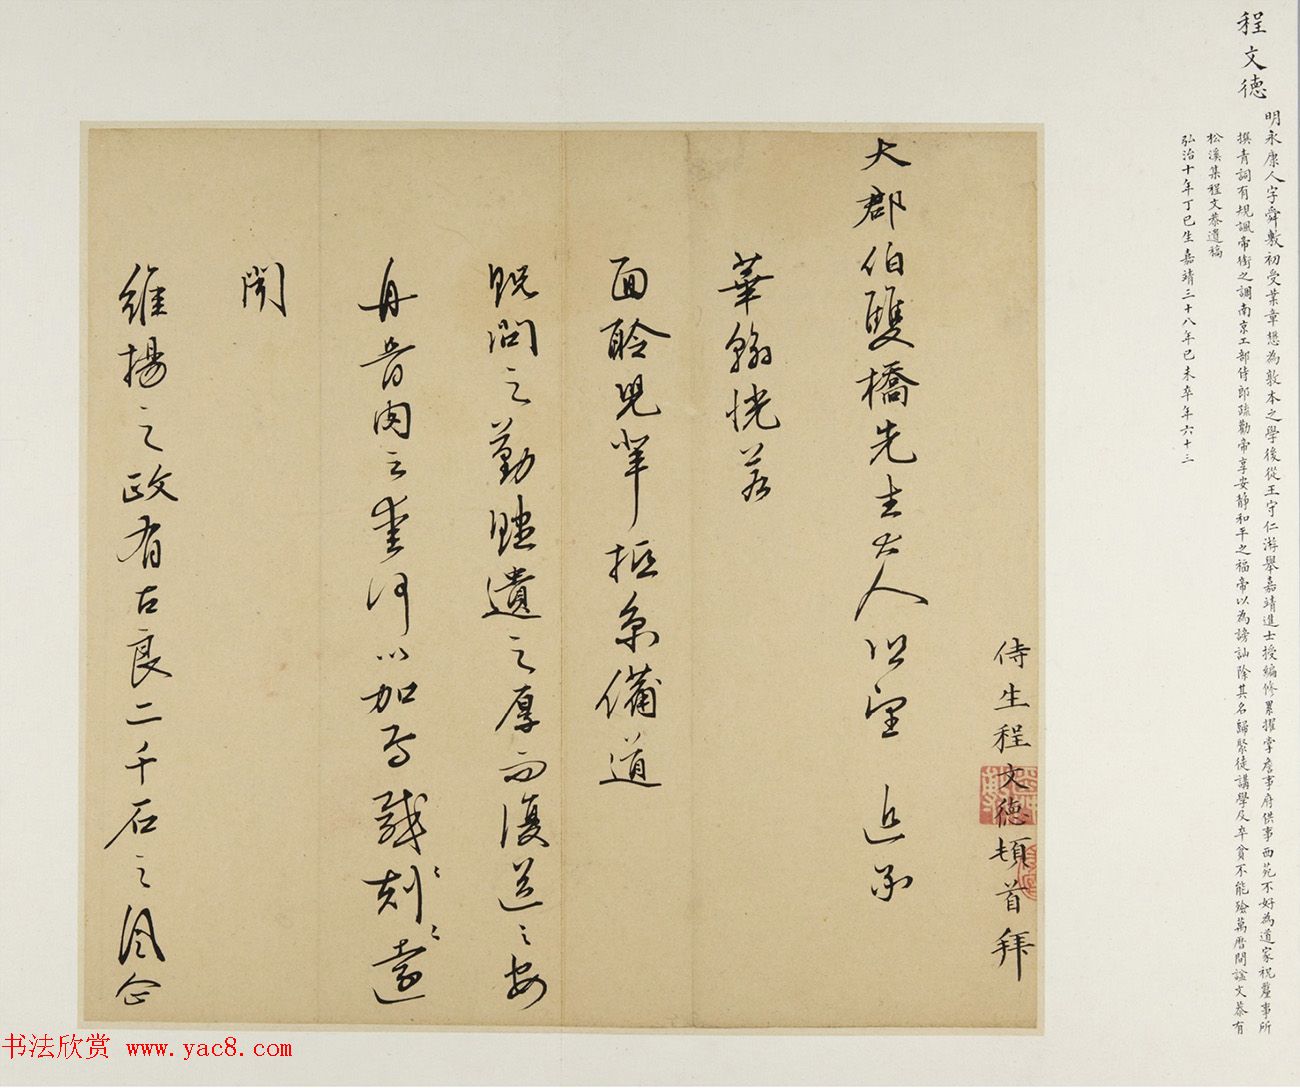 程文德
明永康人字舜敷初受業章懋為敦本之學後從王守仁游舉嘉靖進士授編修累擢掌詹事府供事西苑不好為道家祝釐事所
撰青詞有規諷帝銜之調南京工部侍郎疏勸帝享安靜和平之福帝以為謗訕除其名歸聚徒講學及卒貧不能殮萬曆間謚文恭有
松溪集程文恭遺稿
弘治十年丁巳生嘉靖三十八年己未卒年六十三
侍生程文德頓首拜
大郡伯雙橋先生大人 近承
華翰恍若
面聆兒輩抵京備道
貺問之勤贐遺之厚而復送之安
舟骨肉之愛何以加焉感刻〻遠〻
聞
維揚之政有古良二千石之風企
书法欣赏 www.yac8.com